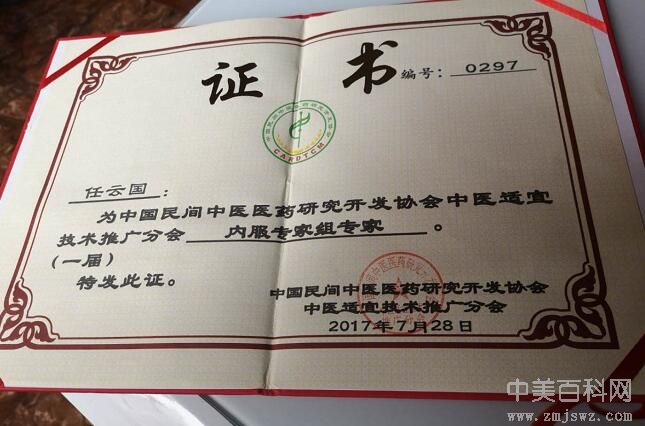 证 书
编号：0297
CARDTCM
任云国：
为中国民间中医医药研究开发协会中医适宜
技术推广分会 内服专家组专家 。
(一届)
特发此证。
中国民间中医医药研究开发协会
中医适宜技术推广分会
2017年7月28日
中美百科网
www.zmjswz.com